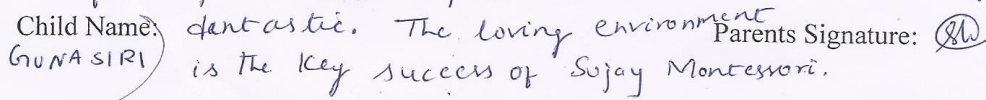 Child Name: dantastic. The loving environment Parents Signature: SW
GUNASIRI is the key success of Sujay Montessori.